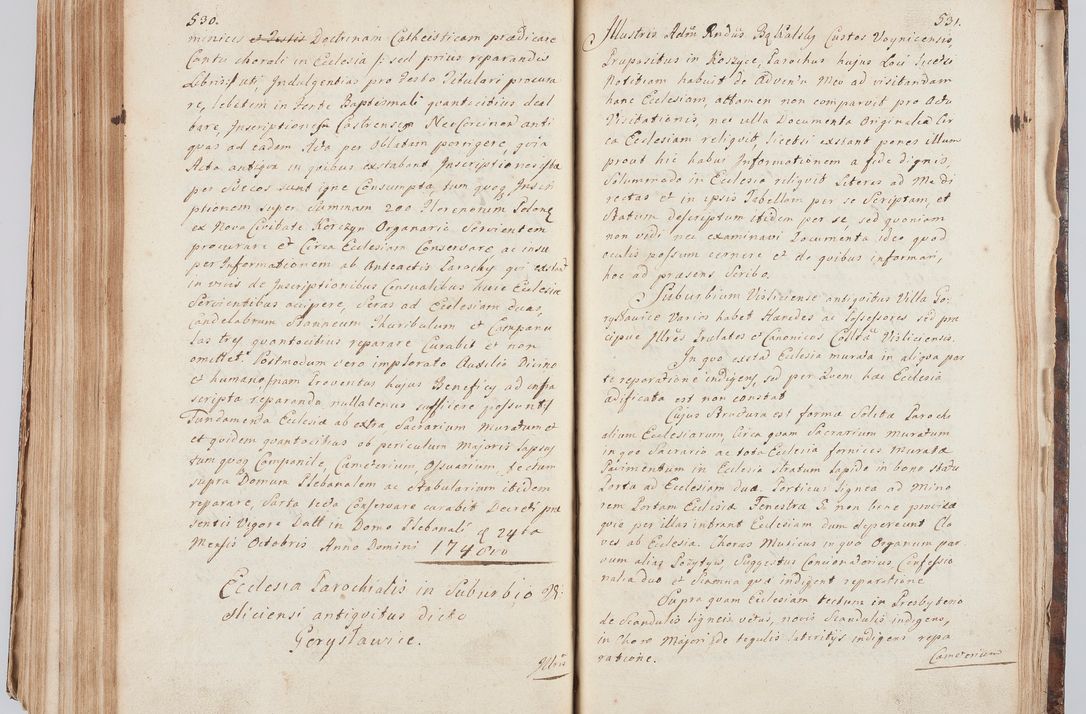 530.
minicis et Festis Doctrinam Catheisticam prædicare
Cantu chorali in Ecclesia /: sed prius reparandis
Libris:/ uti, Indulgentias pro Festo Titulari procura
re, lebetem in Fonte Baptismali quantocitius deal
bare, Inscriptiones Castrenses NeoCorcinen anti
quas ad eadem Acta per Oblatam porrigere, quia
Acta antiqua in quibus extabant Inscriptiones istæ
per Suecos sunt igne Consumpta, tum quoq Inscri
ptionem super Summam 200 Florenorum Polon
ex Nova Civitate Korczyn Organario Servientem
procurare et Circa Ecclesiam Conservare, ac insu
per Informationem ab Anteactis Parochy qui
in vivis de Inscriptionibus Censualibus huic Ecclesiæ
Servientibus accipere, Seras ad Ecclesiam duas,
Candelabrum Stanneum Thuribulum et Campanu
las tres quantocitius reparare Curabit et non
omittet. Postmodum vero implorato Auxilio Divino
et humano, nam Proventus hujus Beneficy ad infra
scripta reparanda nullatenus sufficere possunt
Fundamenta Ecclesiæ ab extra Sacrarium Muratum
et quidem quantocitius ob periculum Majoris lapsus
tum quoq Campanile, Cæmeterium, Ossuarium, tectum
supra Domum Plebanalem ac Stabularium itidem
reparare, Sarta tecta Conservare curabit Decreti præ
sentis Vigore Datt in Domo Plebanali d 24ta
Mensis Octobris Anno Domini 1748vo
Ecclesia Parochialis in Suburbio Vi:
sliciensi antiquitus dicto
Gorysławice.
Illris
531.
Illustris Adm Rndus Bąkalsky Custos Voynicensis
Præpositus in Koszyce, Parochus hujus Loci licet
Notitiam habuit de Adventu Meo ad visitandam
hanc Ecclesiam, attamen non comparuit pro Actu
Visitationis, nec ulla Documenta Originalia Cir
ca Ecclesiam reliquit, licet existant penes illum
prout hic habui Informationem a fide dignis,
Solummodo in Ecclesia reliquit Literas ad Me di
rectas et in ipsis Tabellam per se Scriptam, et
Statum descriptum itidem per se, sed quoniam
non vidi nec examinavi Documenta ideo quod
oculis possum cernere et de quibus informari,
hoc ad præsens Scribo.
Suburbium Visliciense antiquibus Villa Go:
rysławice Varios habet Hæredes ac Possessores sed præ
cipue Illres Prælatos et Canonicos Collta Visliciensis.
In quo extat Ecclesia murata in aliqua par
te reparatione indigens, sed per quem hæc Ecclesia
ædificata est non constat
Cujus Structura est forma Solita Parochi
alium Ecclesiarum, Circa quam Sacrarium muratum
in quo Sacrario ac tota Ecclesia fornices muratæ
Pavimentum in Ecclesia Stratum lapide in bono statu
Porta ad Ecclesiam duæ. Porticus lignea ad Mino
rem Portam Ecclesiæ Fenestræ 5 non bene provisæ
quia per illas intrant Ecclesiam dum depereunt Cla
ves ab Ecclesia. Chorus Musicus in quo Organum par
vum alias Pozytyw, Suggestus Concionatorius, Confessio
nalia duo et Scamna quæ indigent reparatione
Supra quam Ecclesiam tectum in Presbyterio
de Scandulis ligneis vetus, novis Scandulis indigens,
in Choro Majori de tegulis lateritys indigens repa
ratione.
Cæmeterium